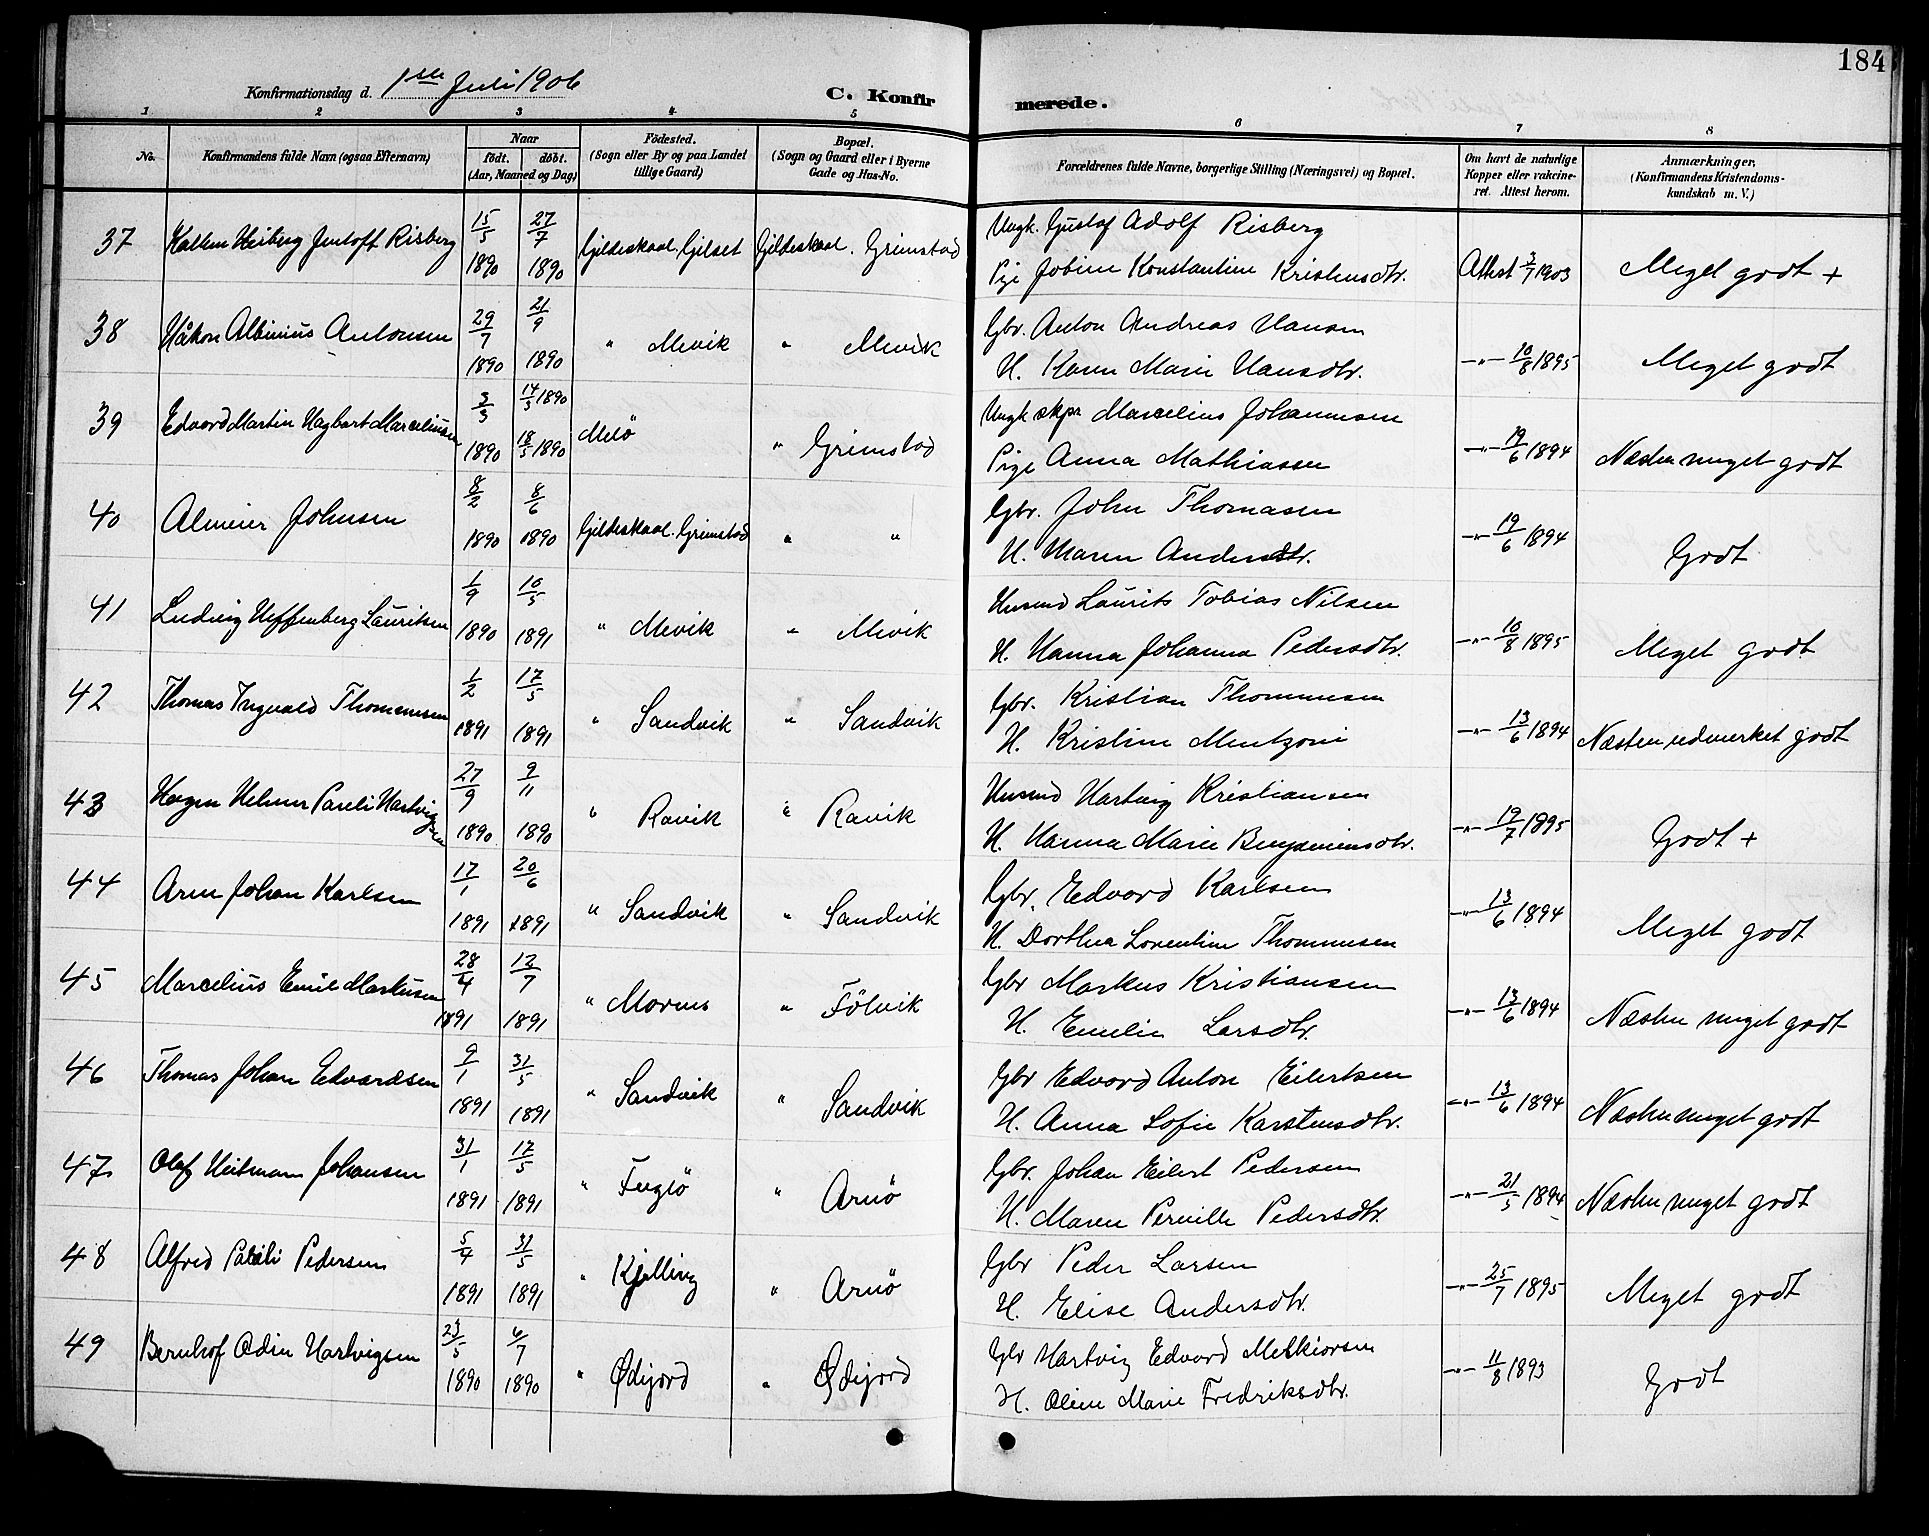 184
Konfirmationsdag d. 1ste Juli 1906
C. Konfirmerede.
1 2 3 4 5 6 7 8
No. Konfirmandens fulde Navn (ogsaa Efternavn) Naar født. døbt. (Aar, Maaned og Dag) Födested. (Sogn eller By og paa Landet tillige Gaard) Bopæl. (Sogn og Gaard eller i Byerne Gade og Hus-No. Forældrenes fulde Navne, borgerlige Stilling (Næringsvei) og Bopæl. Om havt de naturlige Kopper eller vakcineret. Attest herom. Anmærkninger, (Konfirmandens Kristendomskundskab m. V.)
37 Heiberg Jentoft Risberg 15/5 1890 27/7 1890 Gildeskaal. Gjelset Gildeskaal. Grimstad Ungk. Gustaf Adolf Risberg
Pige Jobine Konstantine Kristensdtr. Attest 3/7 1903 Meget godt +
38 Håkon Albinius Antonsen 29/7 1890 21/9 1890 " Mevik " Mevik Gbr. Anton Andreas Hansen
H. Karen Marie Hansdtr. -"- 10/8 1895 Meget godt
39 Edvard Martin Hagbart Marcelinsen 3/3 1890 14/3 1890 18/5 1890 Melö " Grimstad Ungk. skpr Marcelius Johannesen
Pige Anna Mathiassen -"- 19/6 1894 Næsten meget godt
40 Almeier Johnsen 8/2 1890 8/6 1890 Gildeskaal. Grimstad " " Gbr. John Thomasen
H. Maren Andersdtr. -"- 19/6 1894 Godt
41 Ludvig Heffenberg Lauritsen 1/9 1890 10/5 1891 " Mevik " Mevik Husmd Laurits Tobias Nilsen
H. Hanna Johanna Pedersdtr. -"- 10/8 1895 Meget godt
42 Thomas Ingvald Thommesen 1/2 1891 17/5 1891 " Sandvik " Sandvik Gbr. Kristian Thommesen
H. Kristine Mentzoni -"- 13/6 1894 Næsten udmerket godt
43 Hagen Helmer Pareli Hartvigsen 27/9 1890 9/11 1890 " Ravik " Ravik Husmd Hartvig Kristiansen
H. Hanna Marie Benjaminsdtr. -"- 19/7 1895 Godt +
44 Arne Johan Karlsen 17/1 1891 20/6 1891 " Sandvik " Sandvik Gbr. Edvard Karlsen
H. Dorthea Lorentine Thommesen -"- 13/6 1894 Meget godt
45 Marcelius Emil Markusen 28/4 1891 12/7 1891 " Mornes " Fölvik Gbr Markus Kristiansen
H. Emelie Larsdtr. -"- 13/6 1894 Næsten meget godt
46 Thomas Johan Edvardsen 9/1 1891 31/5 1891 " Sandvik " Sandvik Gbr Edvard Anton Eilertsen
H. Anna Sofie Karstensdtr. -"- 13/6 1894 Næsten meget godt
47 Olaf Heitmann Johansen 31/1 1891 17/5 1891 " Fuglö " Arnö Gbr. Johan Eilert Pedersen
H. Maren Pernille Pedersdtr. -"- 21/5 1894 Næsten meget godt
48 Alfred Pedersen 5/4 1891 31/5 1891 " Kjelling " Arnö Gbr Peder Larsen
H. Elise Andersdtr. -"- 25/7 1895 Meget godt
49 Bernhof Odin Hartvigsen 23/5 1890 6/7 1890 " Ødejord " Ødejord Gbr Hartvig Edvard Melkiorsen
H. Oline Marie Fredriksdtr. -"- 11/8 1893 Godt